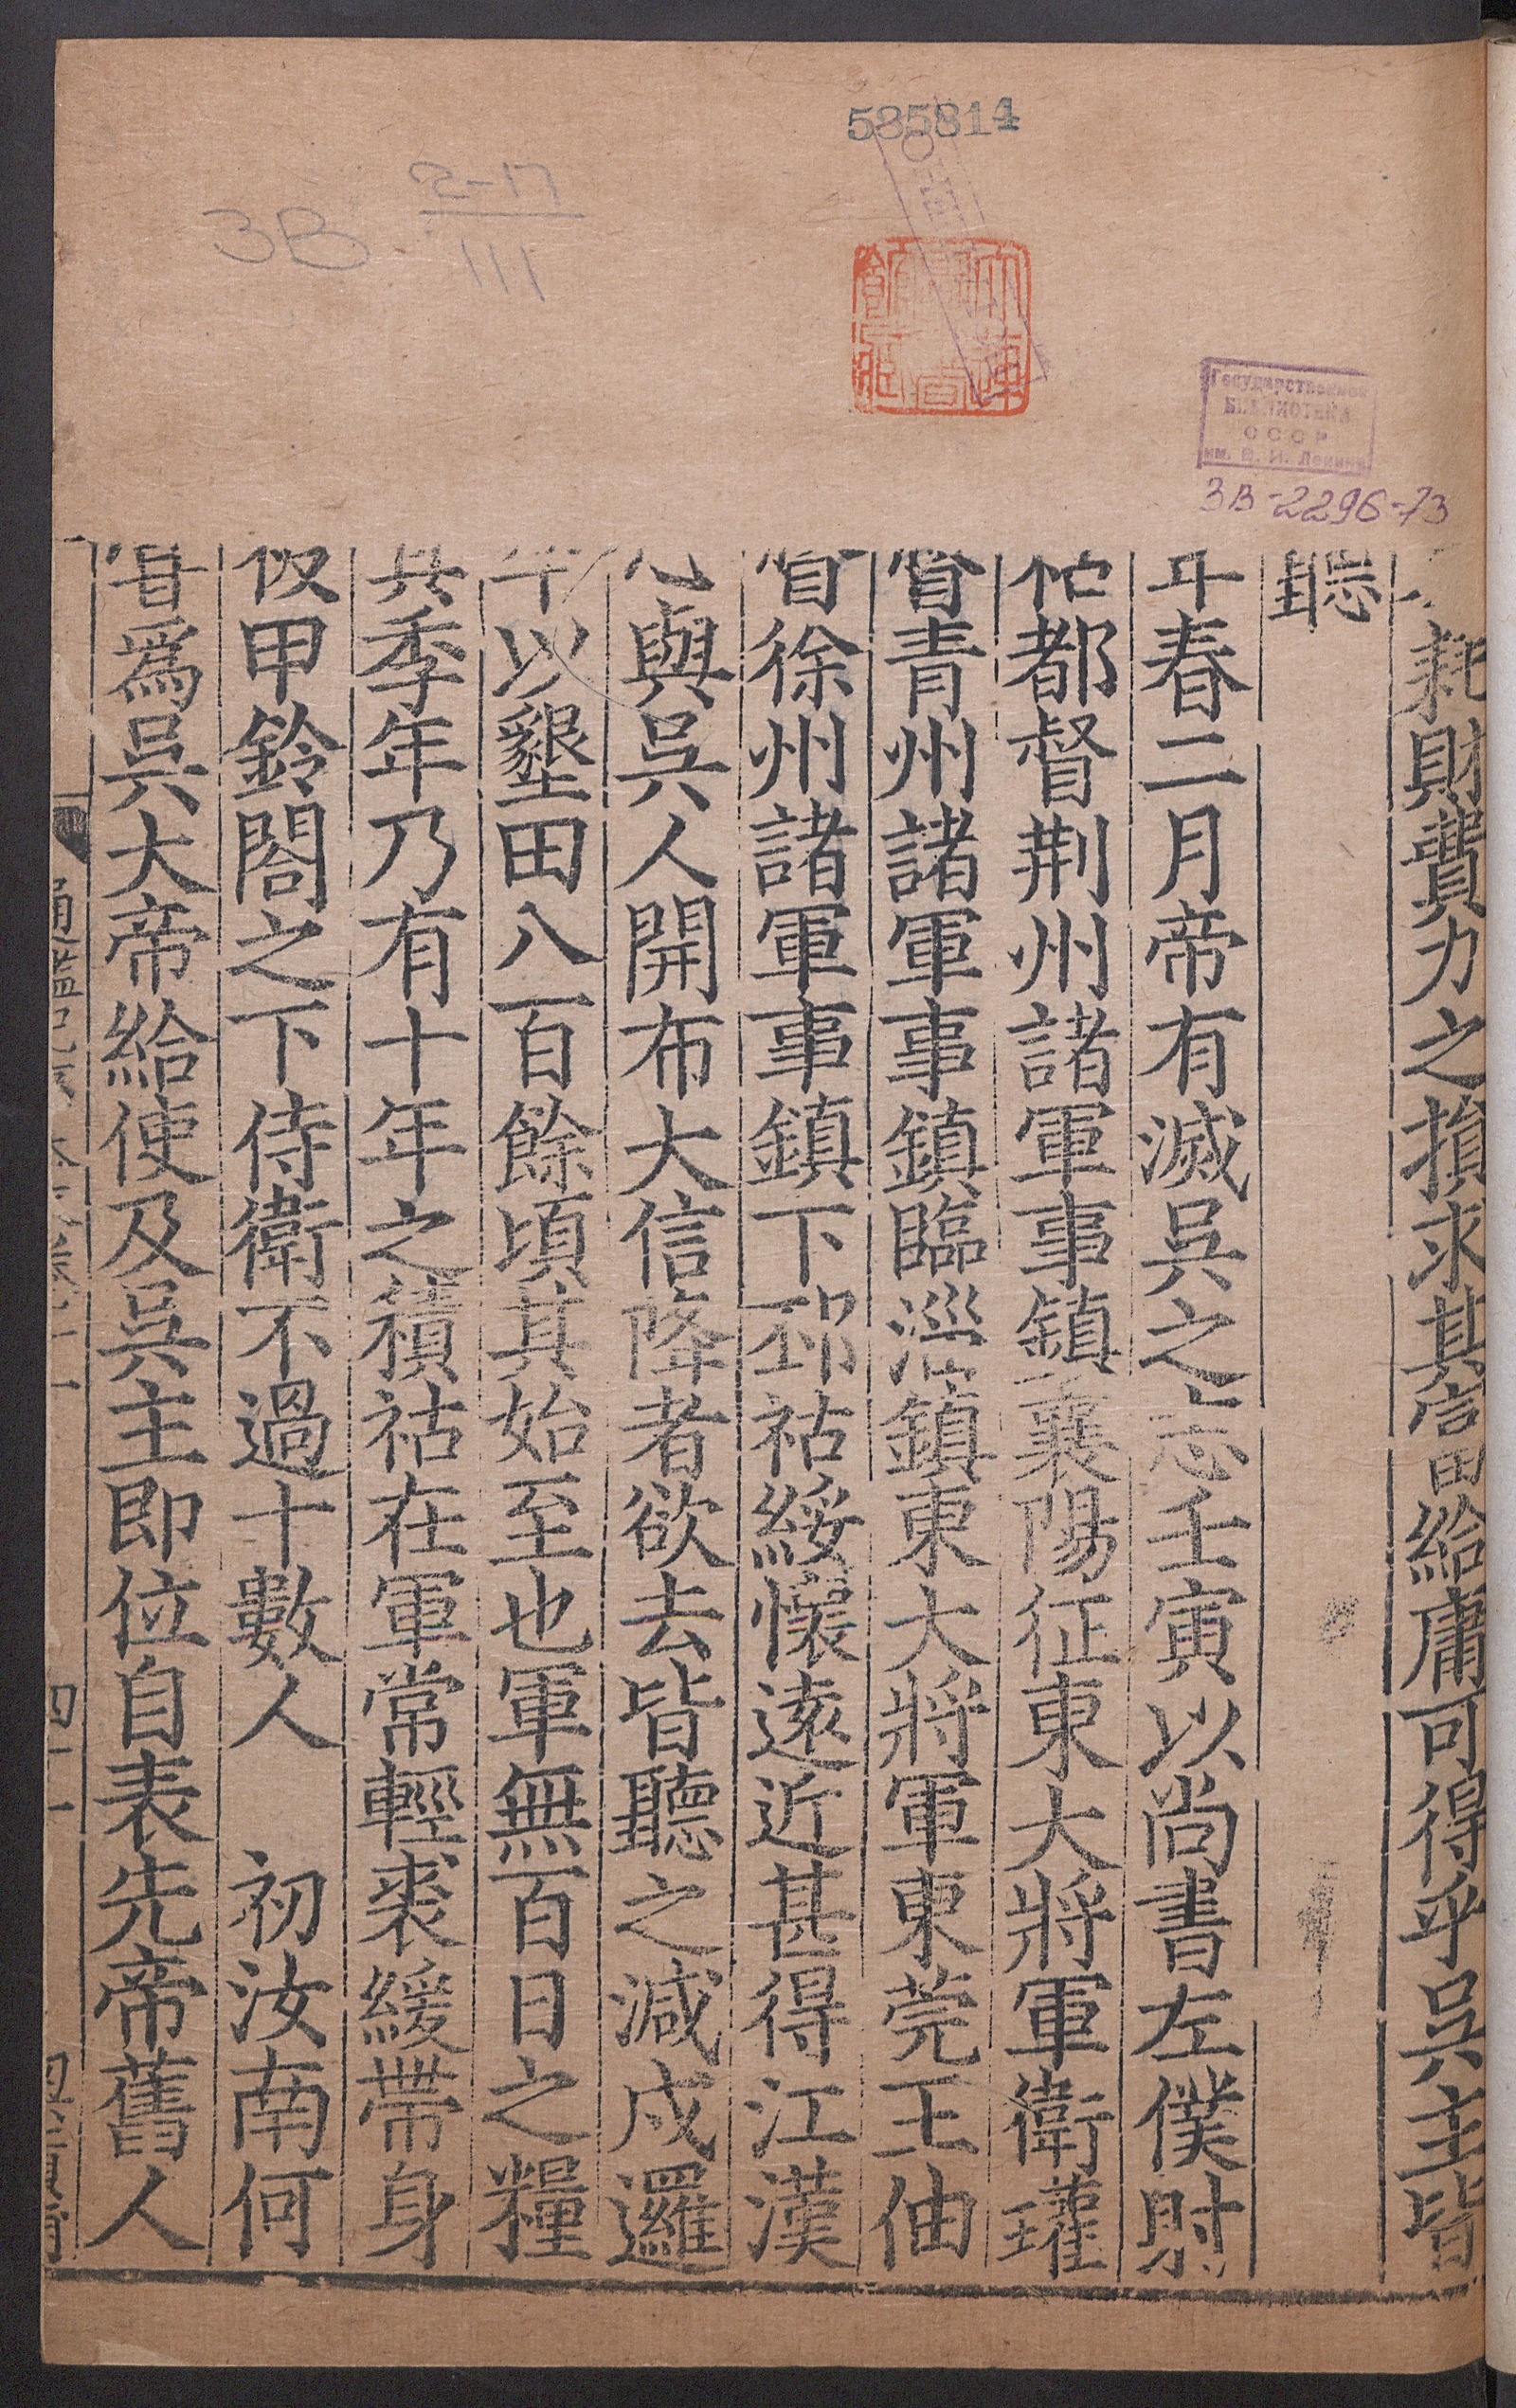 585814
3B 2-17
111
Государственная
БИБЛИОТЕКА
СССР
им. В. И. Ленина
3В-2296-73
耗財費力之損求其富給庸可得乎吳主皆
聽
年春二月帝有滅吳之志壬寅以尚書左僕射
都督荆州諸軍事鎮襄陽征東大將軍衛瓘
督青州諸軍事鎮臨淄鎮東大將軍東莞王伷
督徐州諸軍事鎮下邳祜綏懷遠近甚得江漢
心與吳人開布大信降者欲去皆聽之減戍邏
以墾田八百餘頃其始至也軍無百日之糧
其季年乃有十年之積祜在軍常輕裘緩帶身
被甲鈴閤之下侍衛不過十數人 初汝南何
爲吳大帝給使及吳主即位自表先帝舊人
通鑑紀事